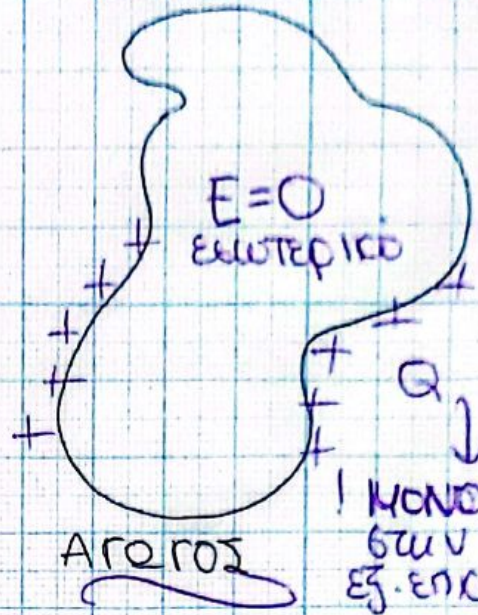 E=0
εσωτερικό
Q
! ΜΟΝΟ
στην
εξ. επιφ
Αγωγός